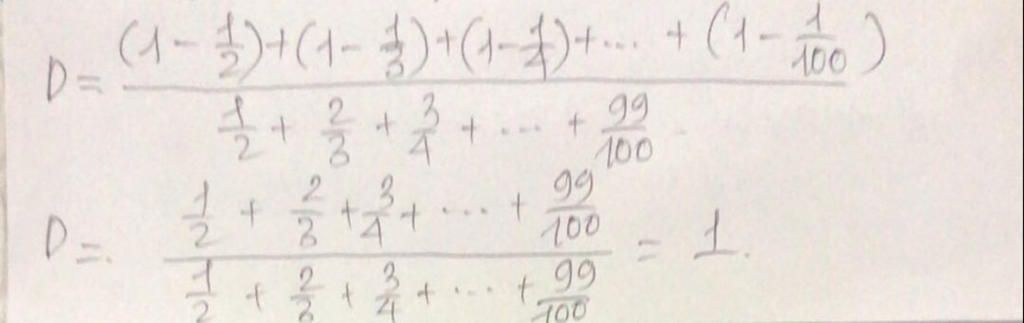 D = \frac{(1 - \frac{1}{2}) + (1 - \frac{1}{3}) + (1 - \frac{1}{4}) + ... + (1 - \frac{1}{100})}{\frac{1}{2} + \frac{2}{3} + \frac{3}{4} + ... + \frac{99}{100}}
D = \frac{\frac{1}{2} + \frac{2}{3} + \frac{3}{4} + ... + \frac{99}{100}}{\frac{1}{2} + \frac{2}{3} + \frac{3}{4} + ... + \frac{99}{100}} = 1.